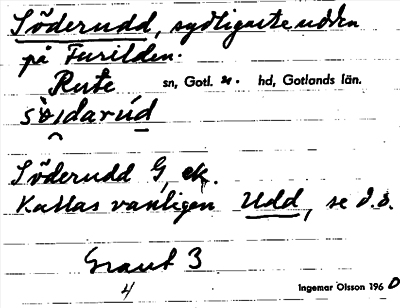 Söderudd, sydligaste udden
på Furilden.
Rute sn, Gotl. n. hd, Gotlands län.
södarúd
Söderudd G, ek.
Kallas vanligen Udd, se d.o.
Graut 3
4 Ingemar Olsson 196 0